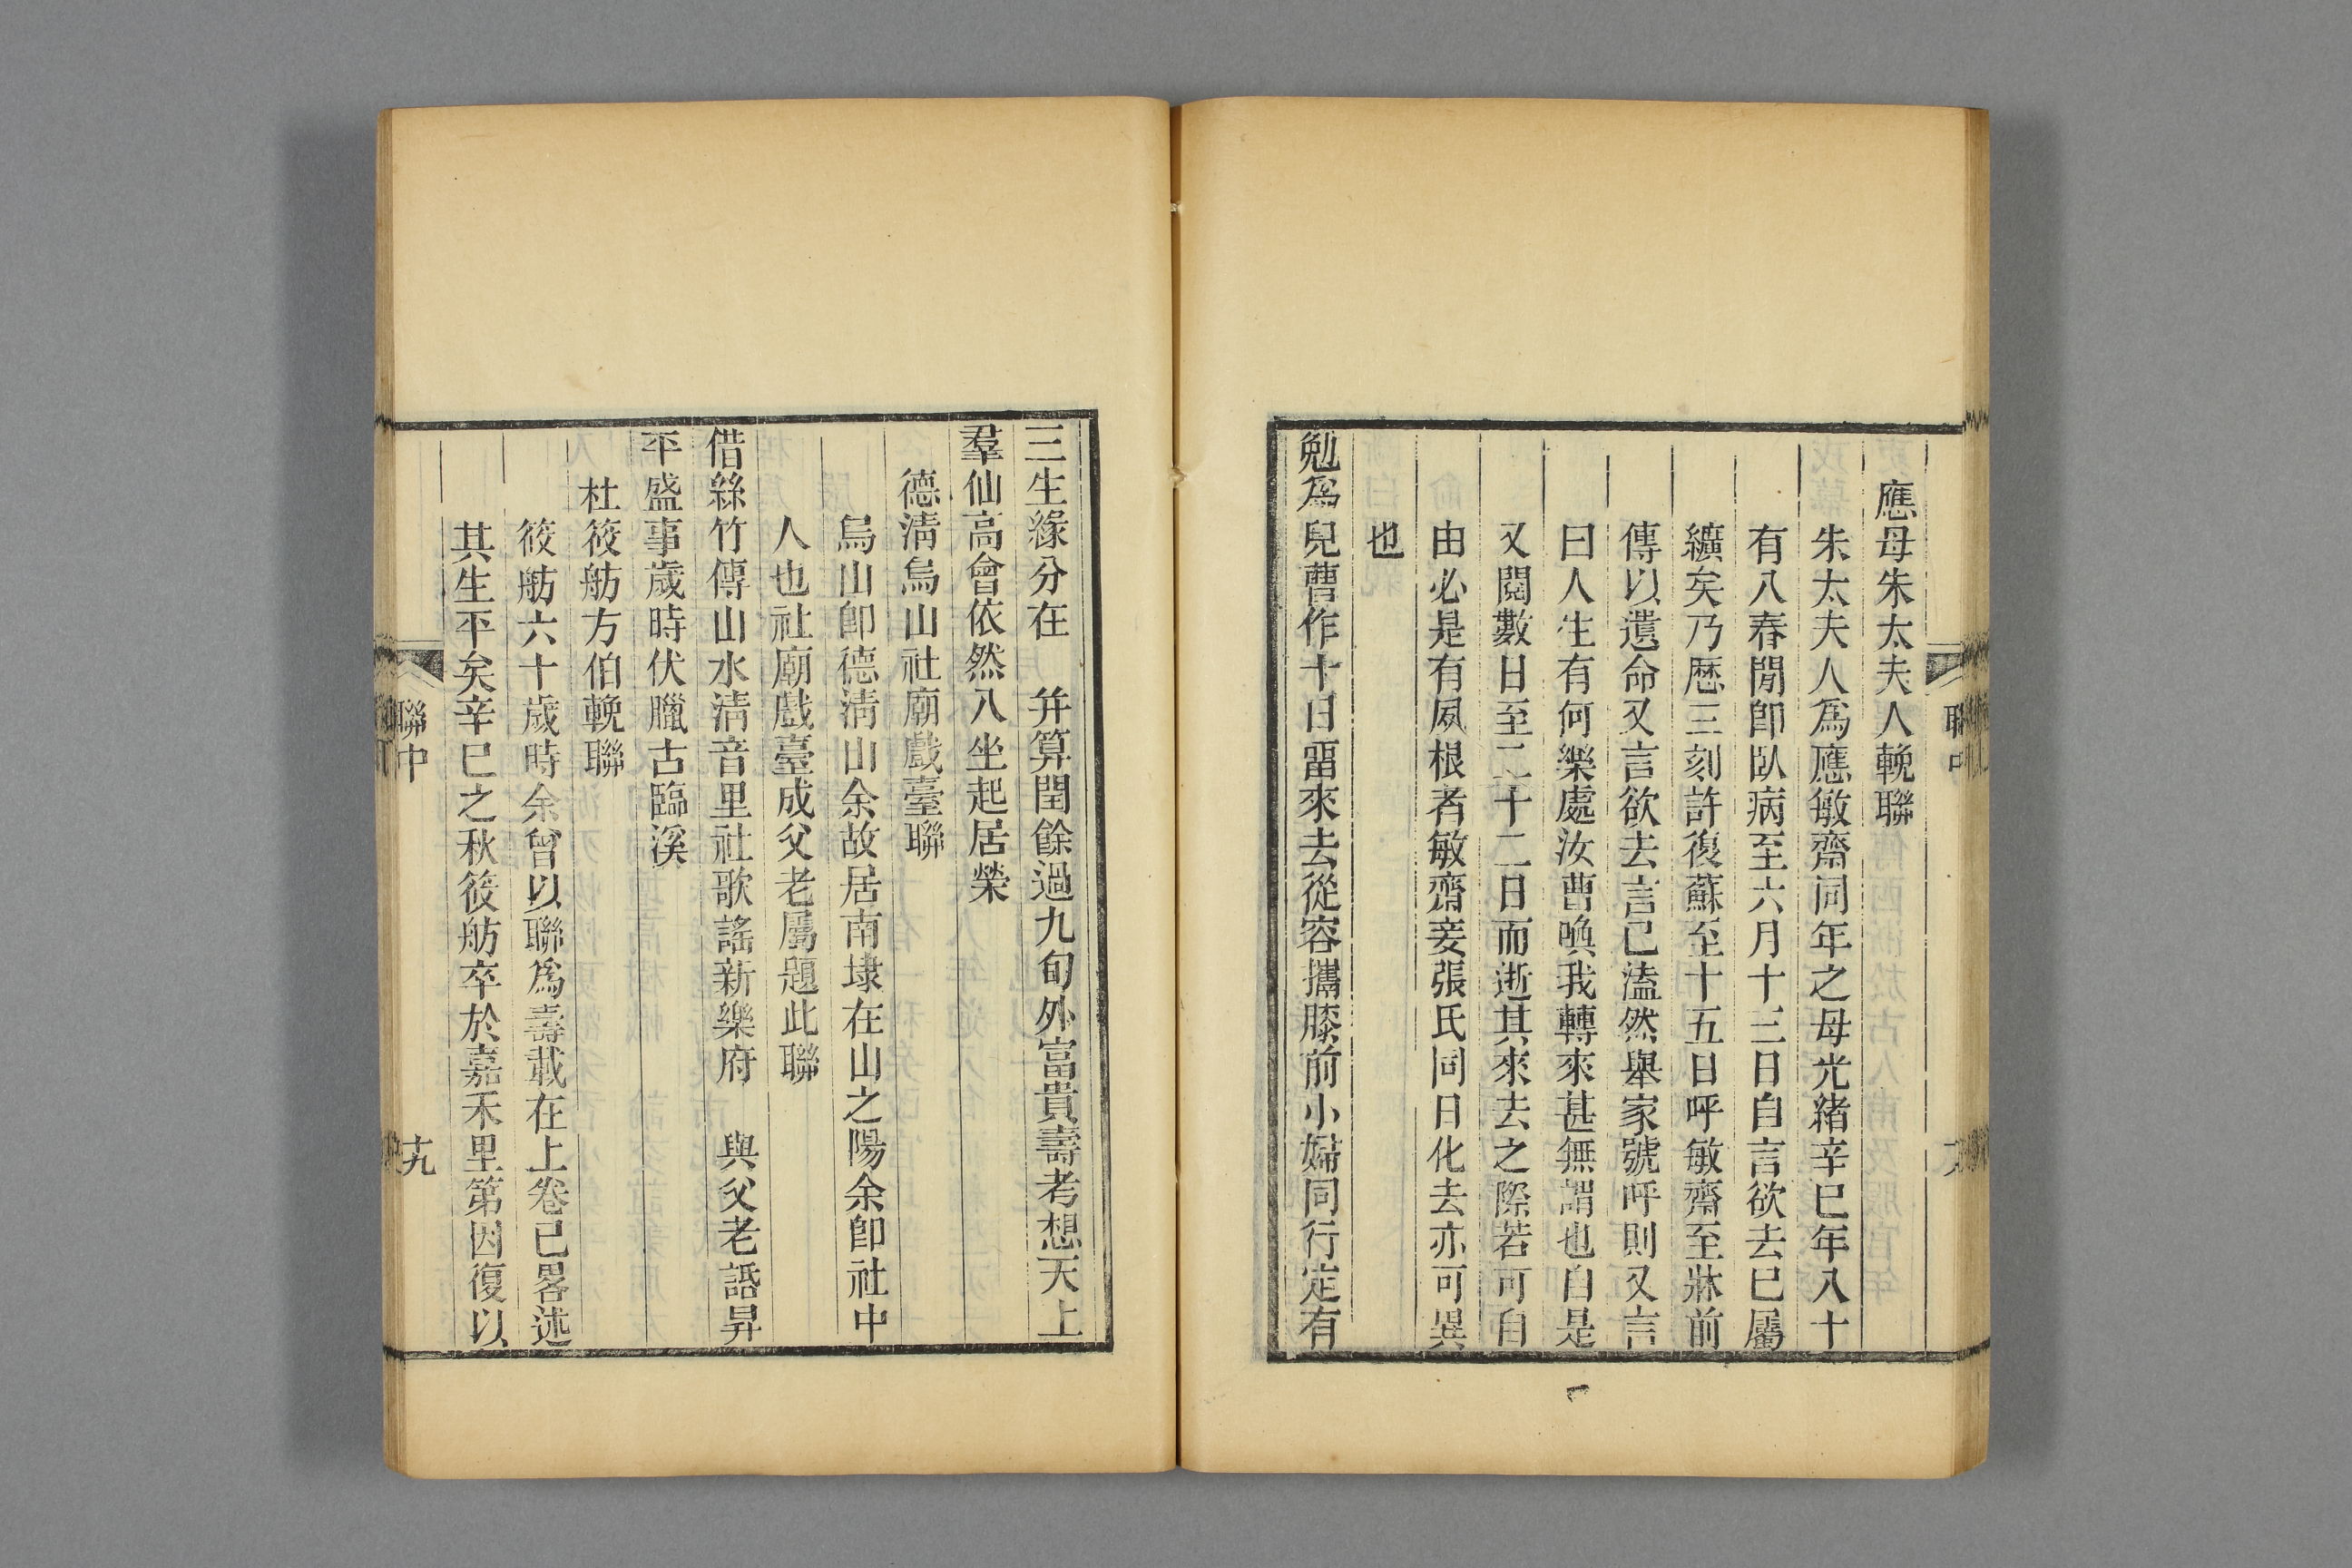 應母朱太夫人輓聯
朱太夫人爲應敏齋同年之母光緒辛巳年八十
有八春閒卽臥病至六月十三日自言欲去已屬
纊矣乃歷三刻許復蘇至十五日呼敏齋至牀前
傳以遺命又言欲去言已溘然舉家號呼則又言
曰人生有何樂處汝曹喚我轉來甚無謂也自是
又閱數日至二十二日而逝其來去之際若可自
由必是有夙根者敏齋妾張氏同日化去亦可異
也
勉爲兒曹作十日畱來去從容攜膝前小婦同行定有
三生緣分在 幷算閏餘過九旬外富貴壽考想天上
羣仙高會依然八坐起居榮
德淸烏山社廟戲臺聯
烏山卽德淸山余故居南埭在山之陽余卽社中
人也社廟戲臺成父老屬題此聯
借絲竹傳山水淸音里社歌謠新樂府 與父老話昇
平盛事歲時伏臘古臨溪
杜筱舫方伯輓聯
筱舫六十歲時余曾以聯爲壽載在上卷已畧述
其生平矣辛巳之秋筱舫卒於嘉禾里第因復以
聯中
十九